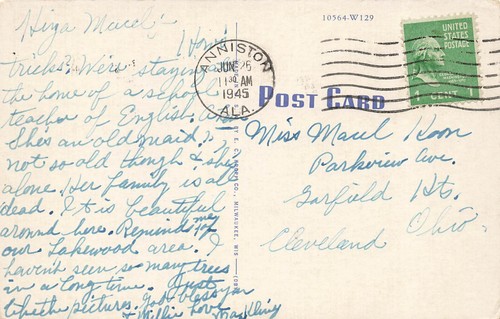 Hiya Maul;
How's
tricks? We're staying at
the home of a school
teacher of English.
She's an old maid.
not so old though & she
alone. Her family is all
dead. It is beautiful
around here. Reminds me of
our Lakewood area. I
haven't seen so many trees
in a long time. Just
like the pictures. God bless you
& Willie Love
10564-W129
ANNISTON
JUN 26
11 30 AM
1945
ALA.
UNITED
STATES
POSTAGE
1 CENT 1
POST CARD
Miss Maul Koon
Parkview Ave.
Garfield Hts.
Cleveland Ohio.
MILWAUKEE, WIS.